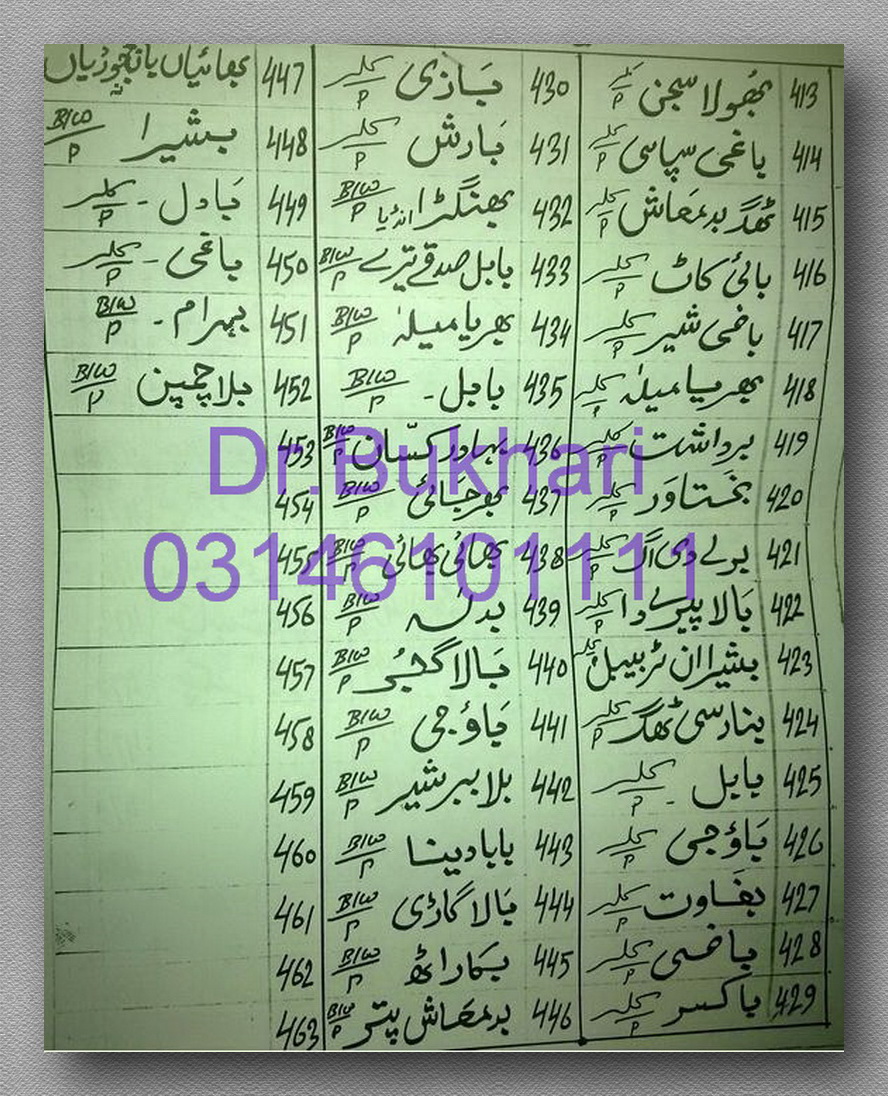 413 بھولا سجن کلر/P
414 باغی سپاہی کلر/P
415 ٹھگ بدمعاش کلر/P
416 بائی کاٹ کلر/P
417 باغی شیر کلر/P
418 بھریا میلہ کلر
419 برداشت کلر
420 بختاور کلر/P
421 بولے دی اگ کلر/P
422 بالا پیرے دا کلر/P
423 بشیراان ٹربیبل کلر
424 بنارسی ٹھگ کلر/P
425 بابل کلر/P
426 باؤجی کلر/P
427 بغاوت کلر/P
428 باغی کلر/P
429 باکسر کلر/P
430 بازی کلر/P
431 بارش کلر/P
432 بھنگڑا انڈیا B/W/P
433 بابل صدقے تیرے B/W/P
434 بھریا میلہ B/W/P
435 بابل - B/W/P
436 بہادر کسان B/W/P
437 بھرجائی B/W/P
438 بھائی بھائی B/W/P
439 بدلہ B/W/P
440 بالا گجر B/W/P
441 باؤجی B/W/P
442 بلا ببر شیر B/W/P
443 بابا دینا B/W/P
444 بالا گاڈی B/W/P
445 B/W/P
446 بدمعاش پتر B/W/P
447 بھائیاں باتجوڑیاں
448 بشیرا B/W/P
449 بادل - کلر/P
450 باغی - کلر/P
451 بہرام - B/W/P
452 بلا چمپن B/W/P
453
454
455
456
457
458
459
460
461
462
463
Dr.Bukhari
03146101111